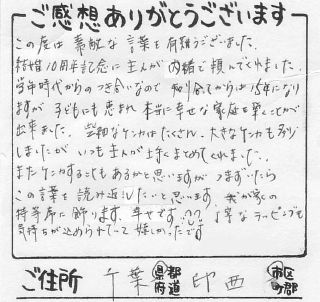 ご感想ありがとうございます
この度は 素敵な 言葉を 有難うございました。
結婚10周年記念に 主人が 内緒で 頼んでくれました。
学年時代からのつき合いなので 知り合ってからは15年になり
ますが 子どもにも恵まれ 本当に幸せな家庭を築くことが
出来ました。 些細なケンカはたくさん、大きなケンカも
しましたが いつも主人が上手くまとめてくれました。
またケンカすることもあるかと思いますが つまずいたら
この言葉を 読み返したいと思います。 我が家の
特等席に飾ります。 幸せです 丁寧なラッピングも
気持ちが込められていて 嬉しかったです
ご住所 千葉 都道府県 印西 市区町郡